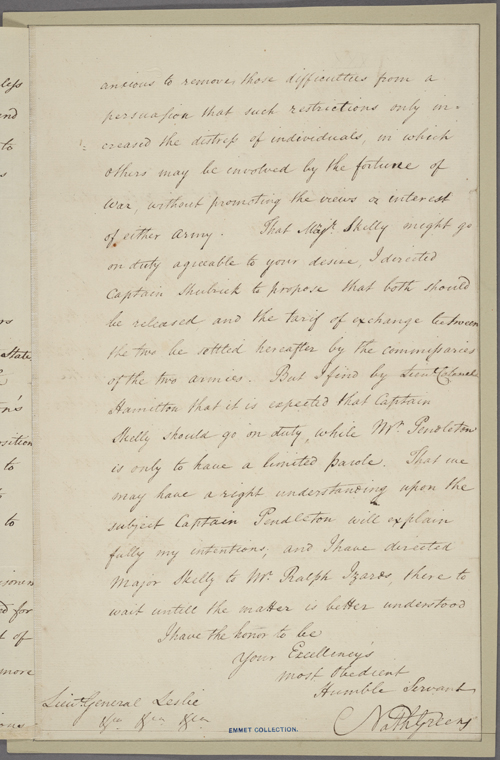 less
and
to
s
anxious to remove those difficulties from a
persuasion that such restrictions only in-
creased the distress of individuals, in which
others may be involved by the fortune of
War, without promoting the views or interest
of either army. That Majr. Skelly might go
on duty agreeable to your desire, I directed
Captain Shubrick to propose that both should
be released and the tarif of exchange between
the two be settled hereafter by the commissaries
of the two armies. But I find by Lieut. Colonel
Hamilton that it is expected that Captain
Skelly should go on duty, while Mr. Pendleton
is only to have a limited parole. That we
may have a right understanding upon the
subject Captain Pendleton will explain
fully my intentions; and I have directed
Major Skelly to Mr. Ralph Izards, there to
wait untill the matter is better understood
I have the honor to be
Your Excellency's
most Obedient
Humble Servant
Nath Greene
Lieut. General Leslie
&ca &ca &ca
EMMET COLLECTION.
rs
State
n's
osition
to
to
d for
t of
more
ions